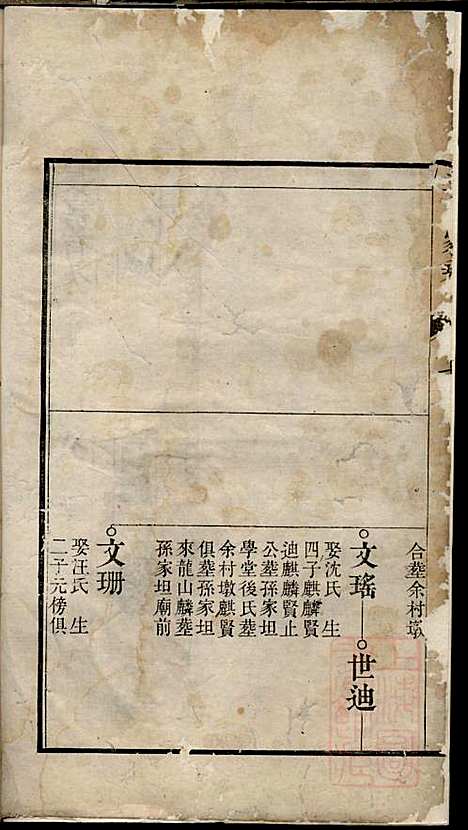 合塟余村墩
文瑤
世迪
娶沈氏 生
四子麒麟賢
迪麒麟賢止
公塟孫家坦
學堂後氏塟
余村墩麒賢
俱塟孫家坦
來龍山麟塟
孫家坦廟前
文珊
娶汪氏 生
二子元榜俱